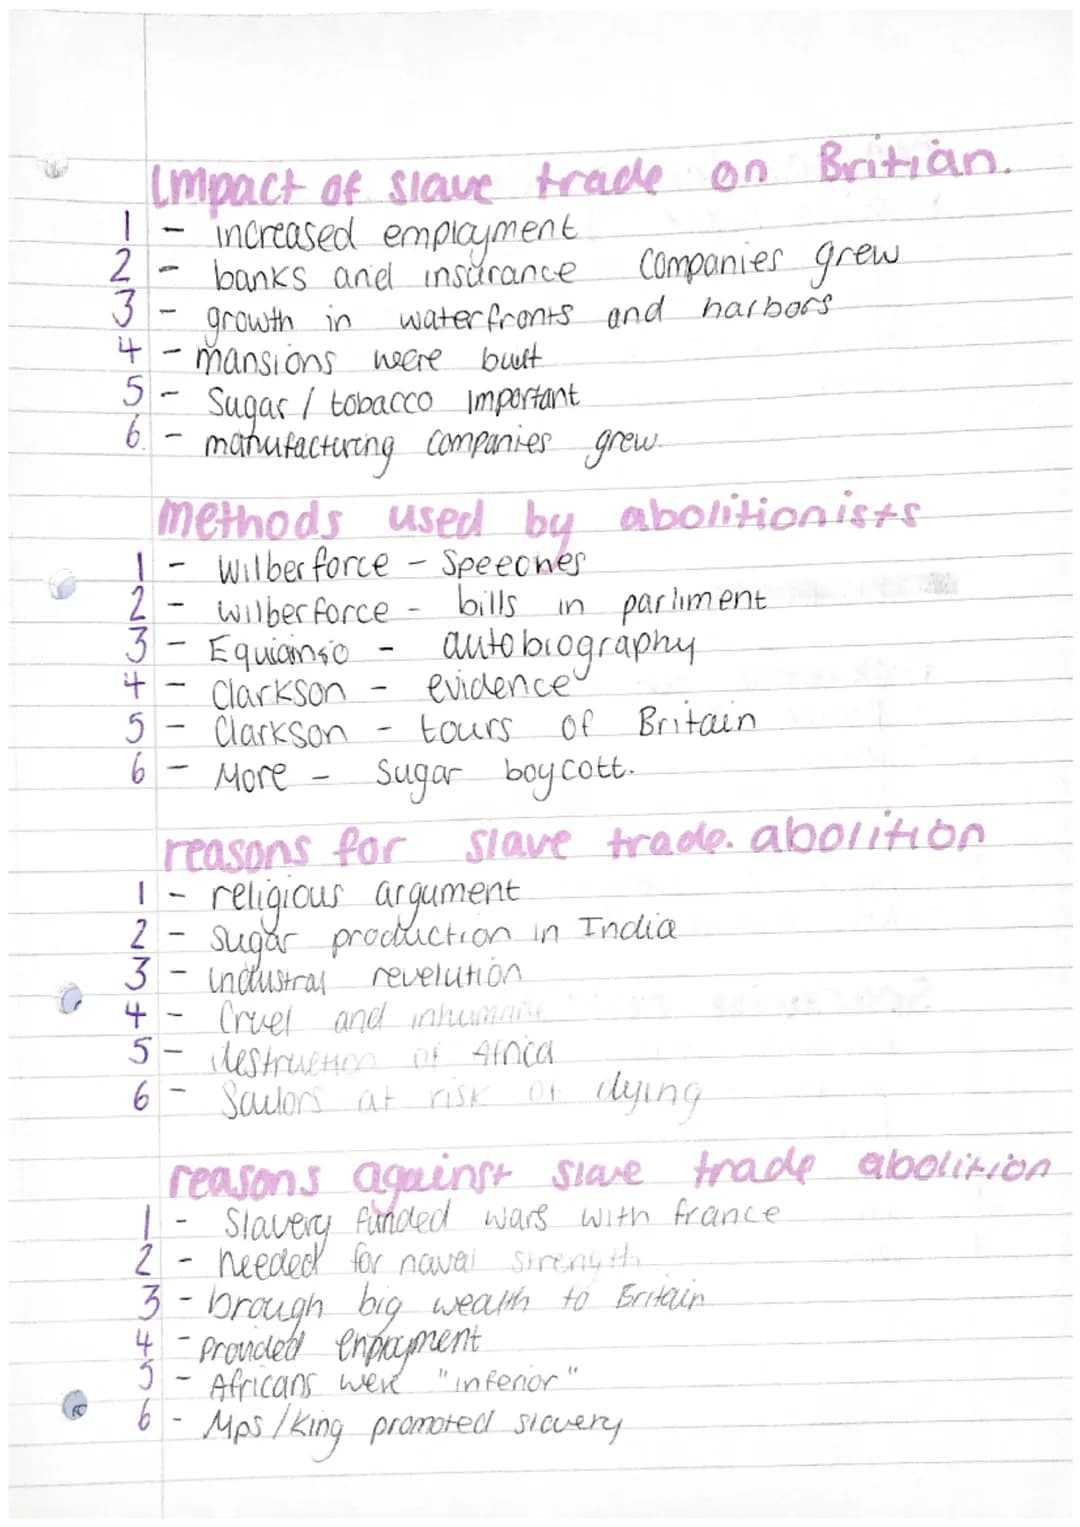 Impact of slave trade on Britian.
1 - increased employment
2 - banks and insurance companies grew
3 - growth in waterfronts and harbors
4 - mansions were built
5 - Sugar / tobacco important
6. - manufacturing companies grew.
methods used by abolitionists
1 - Wilberforce - Speeches
2 - wilberforce - bills in parliment
3 - Equianso - autobiography
4 - Clarkson - evidence
5 - Clarkson - tours of Britain
6 - More - Sugar boycott.
reasons for slave trade. abolition
1 - religious argument
2 - sugar production in India
3 - industral revelution
4 - Cruel and inhumane
5 - destruction of Africa
6 - Sailors at risk of dying
reasons against slave trade abolition
1 - Slavery funded wars with france
2 - needed for naval strength
3 - brough big wealth to Britain
4 - Provided enployment
5 - Africans were "inferior"
6 - Mps / king promoted slavery